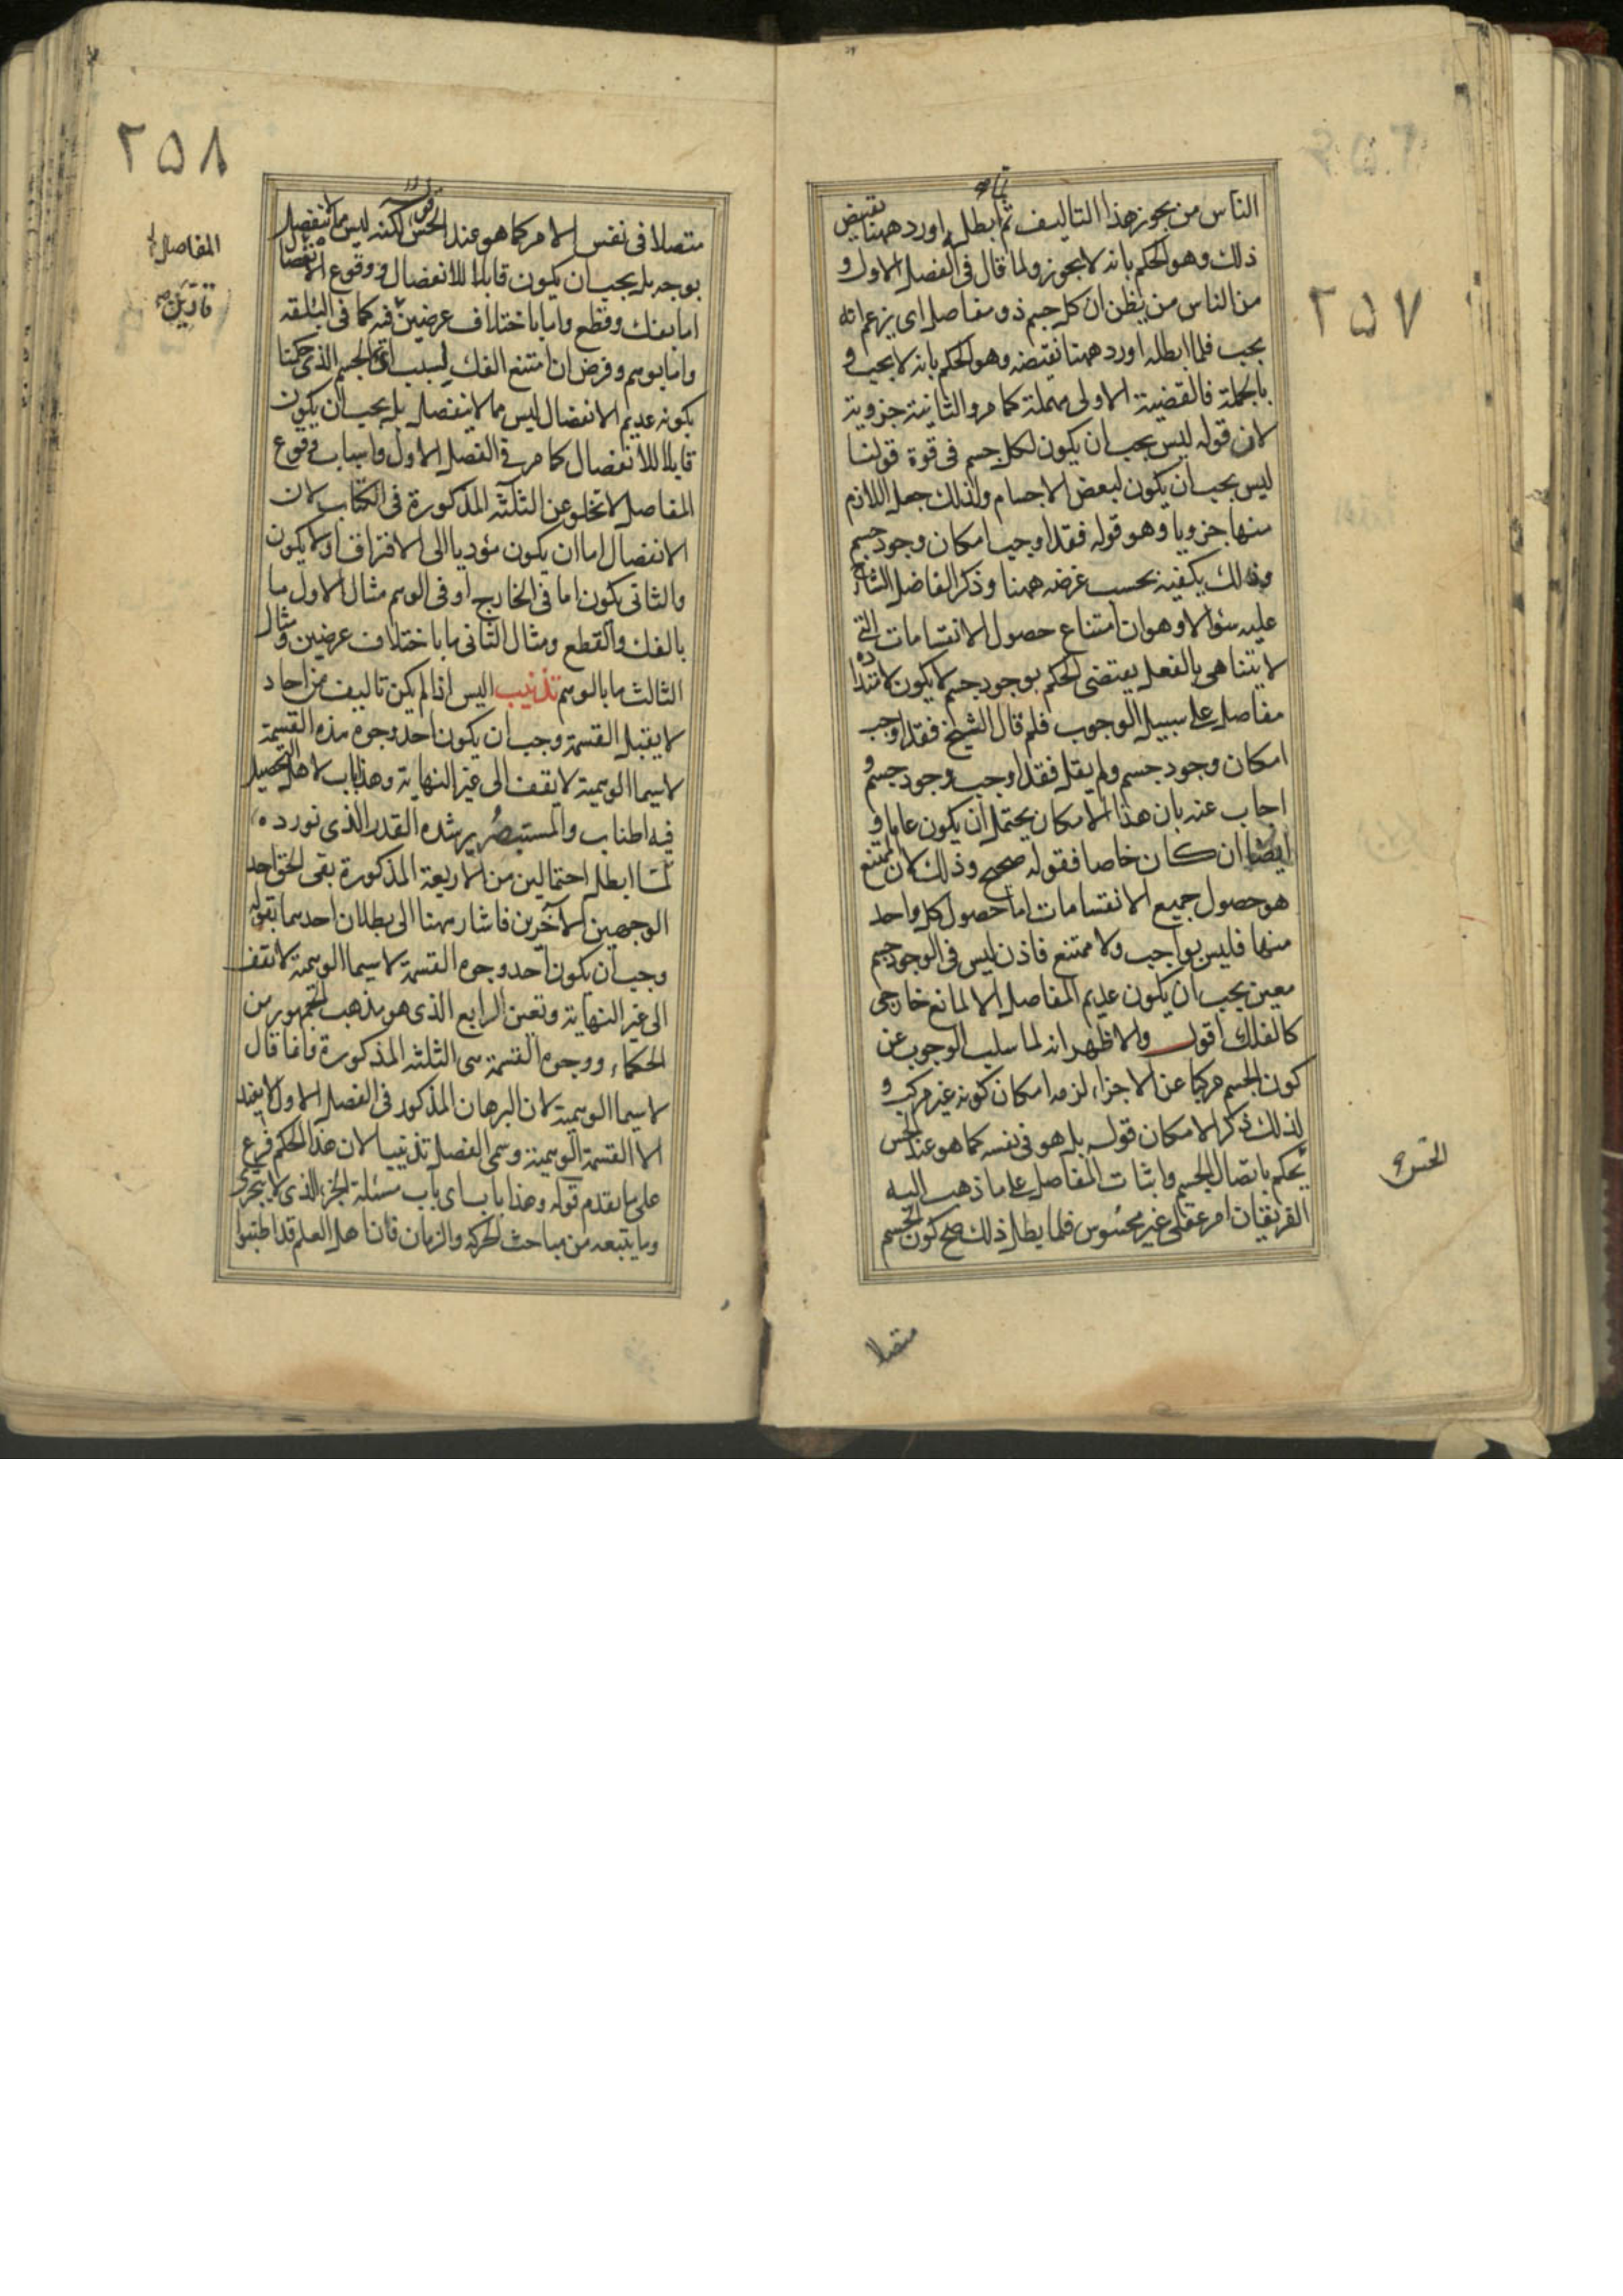 ٢٥٧
الناس من يجوز هذا التاليف ثم ابطله اورد ههنا نقيض
ذلك وهو الحكم بانه لا يجوز ولما قال فى الفصل الاول و
من الناس من يظن ان كل جسم ذو مفاصل اى يزعم انه
يجب فلما ابطله اورد ههنا نقيضه وهو الحكم بانه لا يجب و
بالجملة فالقضية الاولى مهملة كما مر والثانية جزوية
لان قوله ليس يجب ان يكون لكل جسم فى قوة قولنا
ليس يجب ان يكون لبعض الاجسام ولذلك جعل اللازم
منها جزويا وهو قوله فقد اوجب امكان وجود جسم
وذلك يكفيه بحسب غرضه ههنا وذكر الفاضل الشارح
عليه سئوالا وهو ان امتناع حصول الانقسامات التى
لا يتناهى بالفعل يقتضى الحكم بوجود جسم لا يكون لامتداده
مفاصل على سبيل الوجوب فلم قال الشيخ فقد اوجب
امكان وجود جسم ولم يقل فقد اوجب وجود جسم و
اجاب عنه بان هذا الامكان يحتمل ان يكون عاما و
ايضا ان كان خاصا فقوله صحيح وذلك لان الممتنع
هو حصول جميع الانقسامات اما حصول كل واحد
منها فليس بواجب ولا ممتنع فاذن ليس فى الوجود جسم
معين يجب ان يكون عديم المفاصل الا لمانع خارجى
كالفلك اقول والاظهر انه لما سلب الوجوب عن
كون الجسم مركبا عن الاجزاء لزمه امكان كونه غير مركب و
لذلك ذكر الامكان قوله بل هو فى نفسه كما هو عند الحس
يحكم باتصال الجسم واثبات المفاصل على ما ذهب اليه
الفريقان امر عقلى غير محسوس فلما بطل ذلك صح كون الجسم
الحس
متصلا
٢٥٨
متصلا فى نفس الامر كما هو عند الحس قوله لكنه ليس مما لا ينفصل
بوجه بل يجب ان يكون قابلا للانفصال و وقوع الانفصال
اما بفك وقطع واما باختلاف عرضين فيه كما فى البلقة
واما بوهم وفرض ان امتنع الفك لسبب الجسم الذى حكمنا
بكونه عديم الانفصال ليس مما لا ينفصل بل يجب ان يكون
قابلا للانفصال كما مر فى الفصل الاول واسباب وقوع
المفاصل لا تخلو عن الثلثة المذكورة فى الكتاب لان
الانفصال اما ان يكون مؤديا الى الافتراق او لا يكون
والثانى يكون اما فى الخارج او فى الوهم مثال الاول ما
بالفك والقطع ومثال الثانى ما باختلاف عرضين ومثال
الثالث ما بالوهم تذنيب اليس اذا لم يكن تاليف من احاد
لا يقبل القسمة وجب ان يكون احد وجوه هذه القسمة
لا سيما الوهمية لا يقف الى غير النهاية وهذا باب لاهل التحصيل
فيه اطناب والمستبصر يرشده القدر الذى نورده
لما ابطل احتمالين من الاربعة المذكورة بقى الحق احد
الوجهين الآخرين فاشار ههنا الى بطلان احدهما بقوله
وجب ان يكون احد وجوه القسمة لا سيما الوهمية لا تقف
الى غير النهاية وتعين الرابع الذى هو مذهب الجمهور من
الحكماء ووجوه القسمة هى الثلثة المذكورة وانما قال
لا سيما الوهمية لان البرهان المذكور فى الفصل الاول لا يفيد
الا القسمة الوهمية وسمى الفصل تذنيبا لان هذا الحكم فرع
على ما تقدم قوله وهذا باب اى باب مسئلة الجزء الذى لا يتجزى
وما يتبعه من مباحث الحركة والزمان فان اهل العلم قد اطنبوا
المفاصل